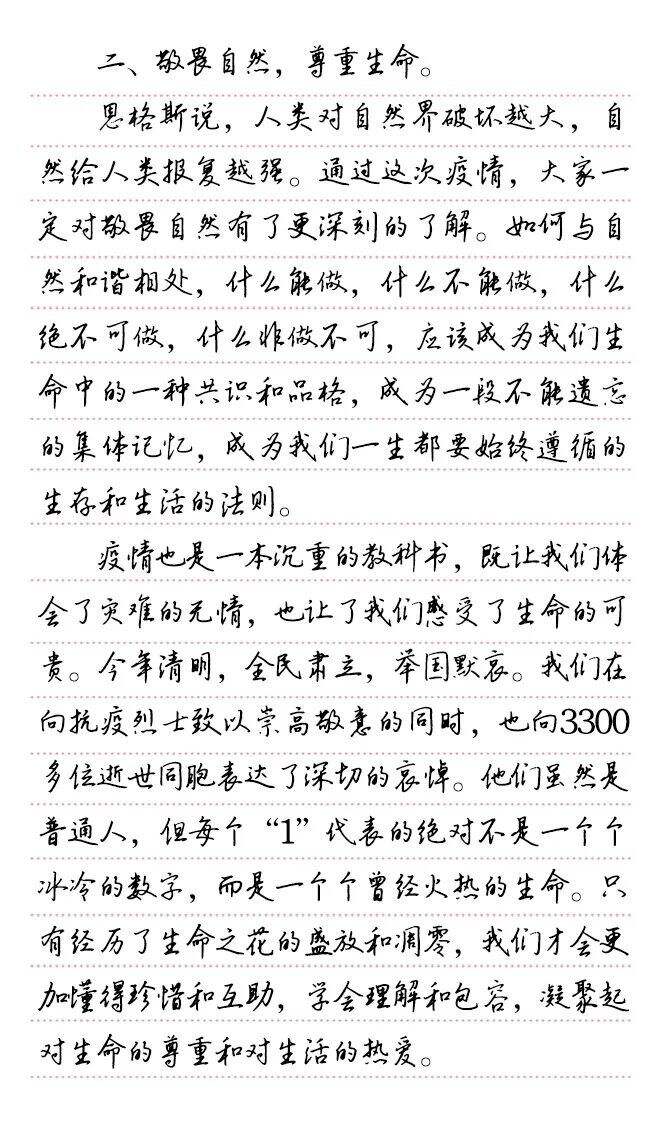 二、敬畏自然，尊重生命。
恩格斯说，人类对自然界破坏越大，自
然给人类报复越强。通过这次疫情，大家一
定对敬畏自然有了更深刻的了解。如何与自
然和谐相处，什么能做，什么不能做，什么
绝不可做，什么非做不可，应该成为我们生
命中的一种共识和品格，成为一段不能遗忘
的集体记忆，成为我们一生都要始终遵循的
生存和生活的法则。
疫情也是一本沉重的教科书，既让我们体
会了灾难的无情，也让了我们感受了生命的可
贵。今年清明，全民肃立，举国默哀。我们在
向抗疫烈士致以崇高敬意的同时，也向3300
多位逝世同胞表达了深切的哀悼。他们虽然是
普通人，但每个“1”代表的绝对不是一个个
冰冷的数字，而是一个个曾经火热的生命。只
有经历了生命之花的盛放和凋零，我们才会更
加懂得珍惜和互助，学会理解和包容，凝聚起
对生命的尊重和对生活的热爱。